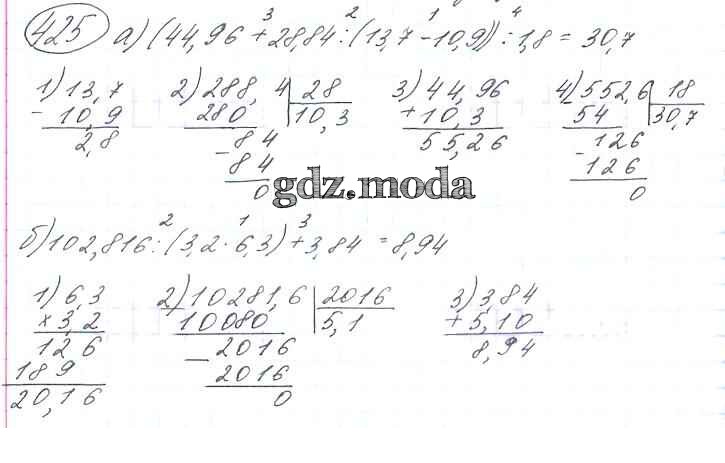 425 а) (44,96 + 28,84 : (13,7 - 10,9)) : 1,8 = 30,7
3 2 1 4
1) 13,7 2) 288,4 | 28 3) 44,96 4) 552,6 | 18
- 10,9 280 10,3 + 10,3 54 30,7
2,8 84 55,26 - 126
- 84 126
0 0
gdz.moda
2 1 3
б) 102,816 : (3,2 · 6,3) + 3,84 = 8,94
1) 6,3 2) 10281,6 | 2016 3) 3,84
x 3,2 10080 5,1 + 5,10
126 - 2016 8,94
189 2016
20,16 0